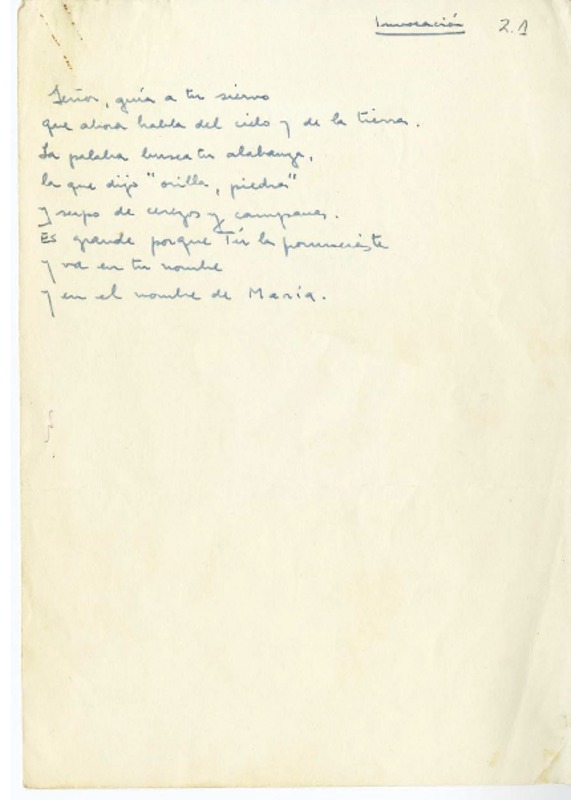 Invocación 2.1
Señor, guía a tu siervo
que ahora habla del cielo y de la tierra.
La palabra busca tu alabanza,
la que dijo "orilla, piedra"
y supo de cerezos y campanas.
Es grande porque Tú la pronunciaste
y va en tu nombre
y en el nombre de María.